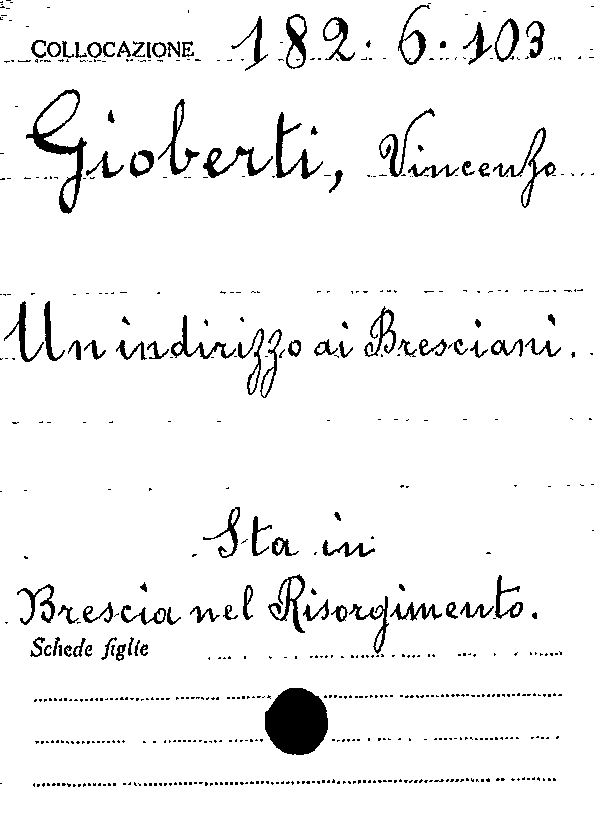 COLLOCAZIONE 182.6.103
Gioberti, Vincenzo
Un indirizzo ai Bresciani.
Sta in
Brescia nel Risorgimento.
Schede figlie